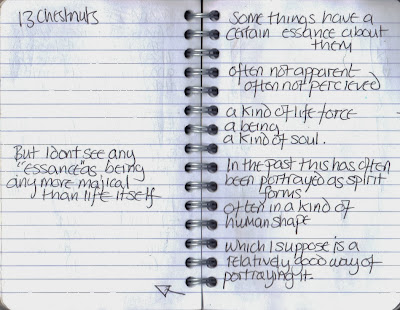 13 Chestnuts
But I dont see any
"essance" as being
any more majical
than life itself
Some things have a
certain essance about
them
often not apparent
often not percieved
a kind of life force
a being
a kind of soul.
In the past this has often
been portrayed as spirit
forms'
often in a kind of
human shape
which I suppose is a
relatively good way of
portraying it.